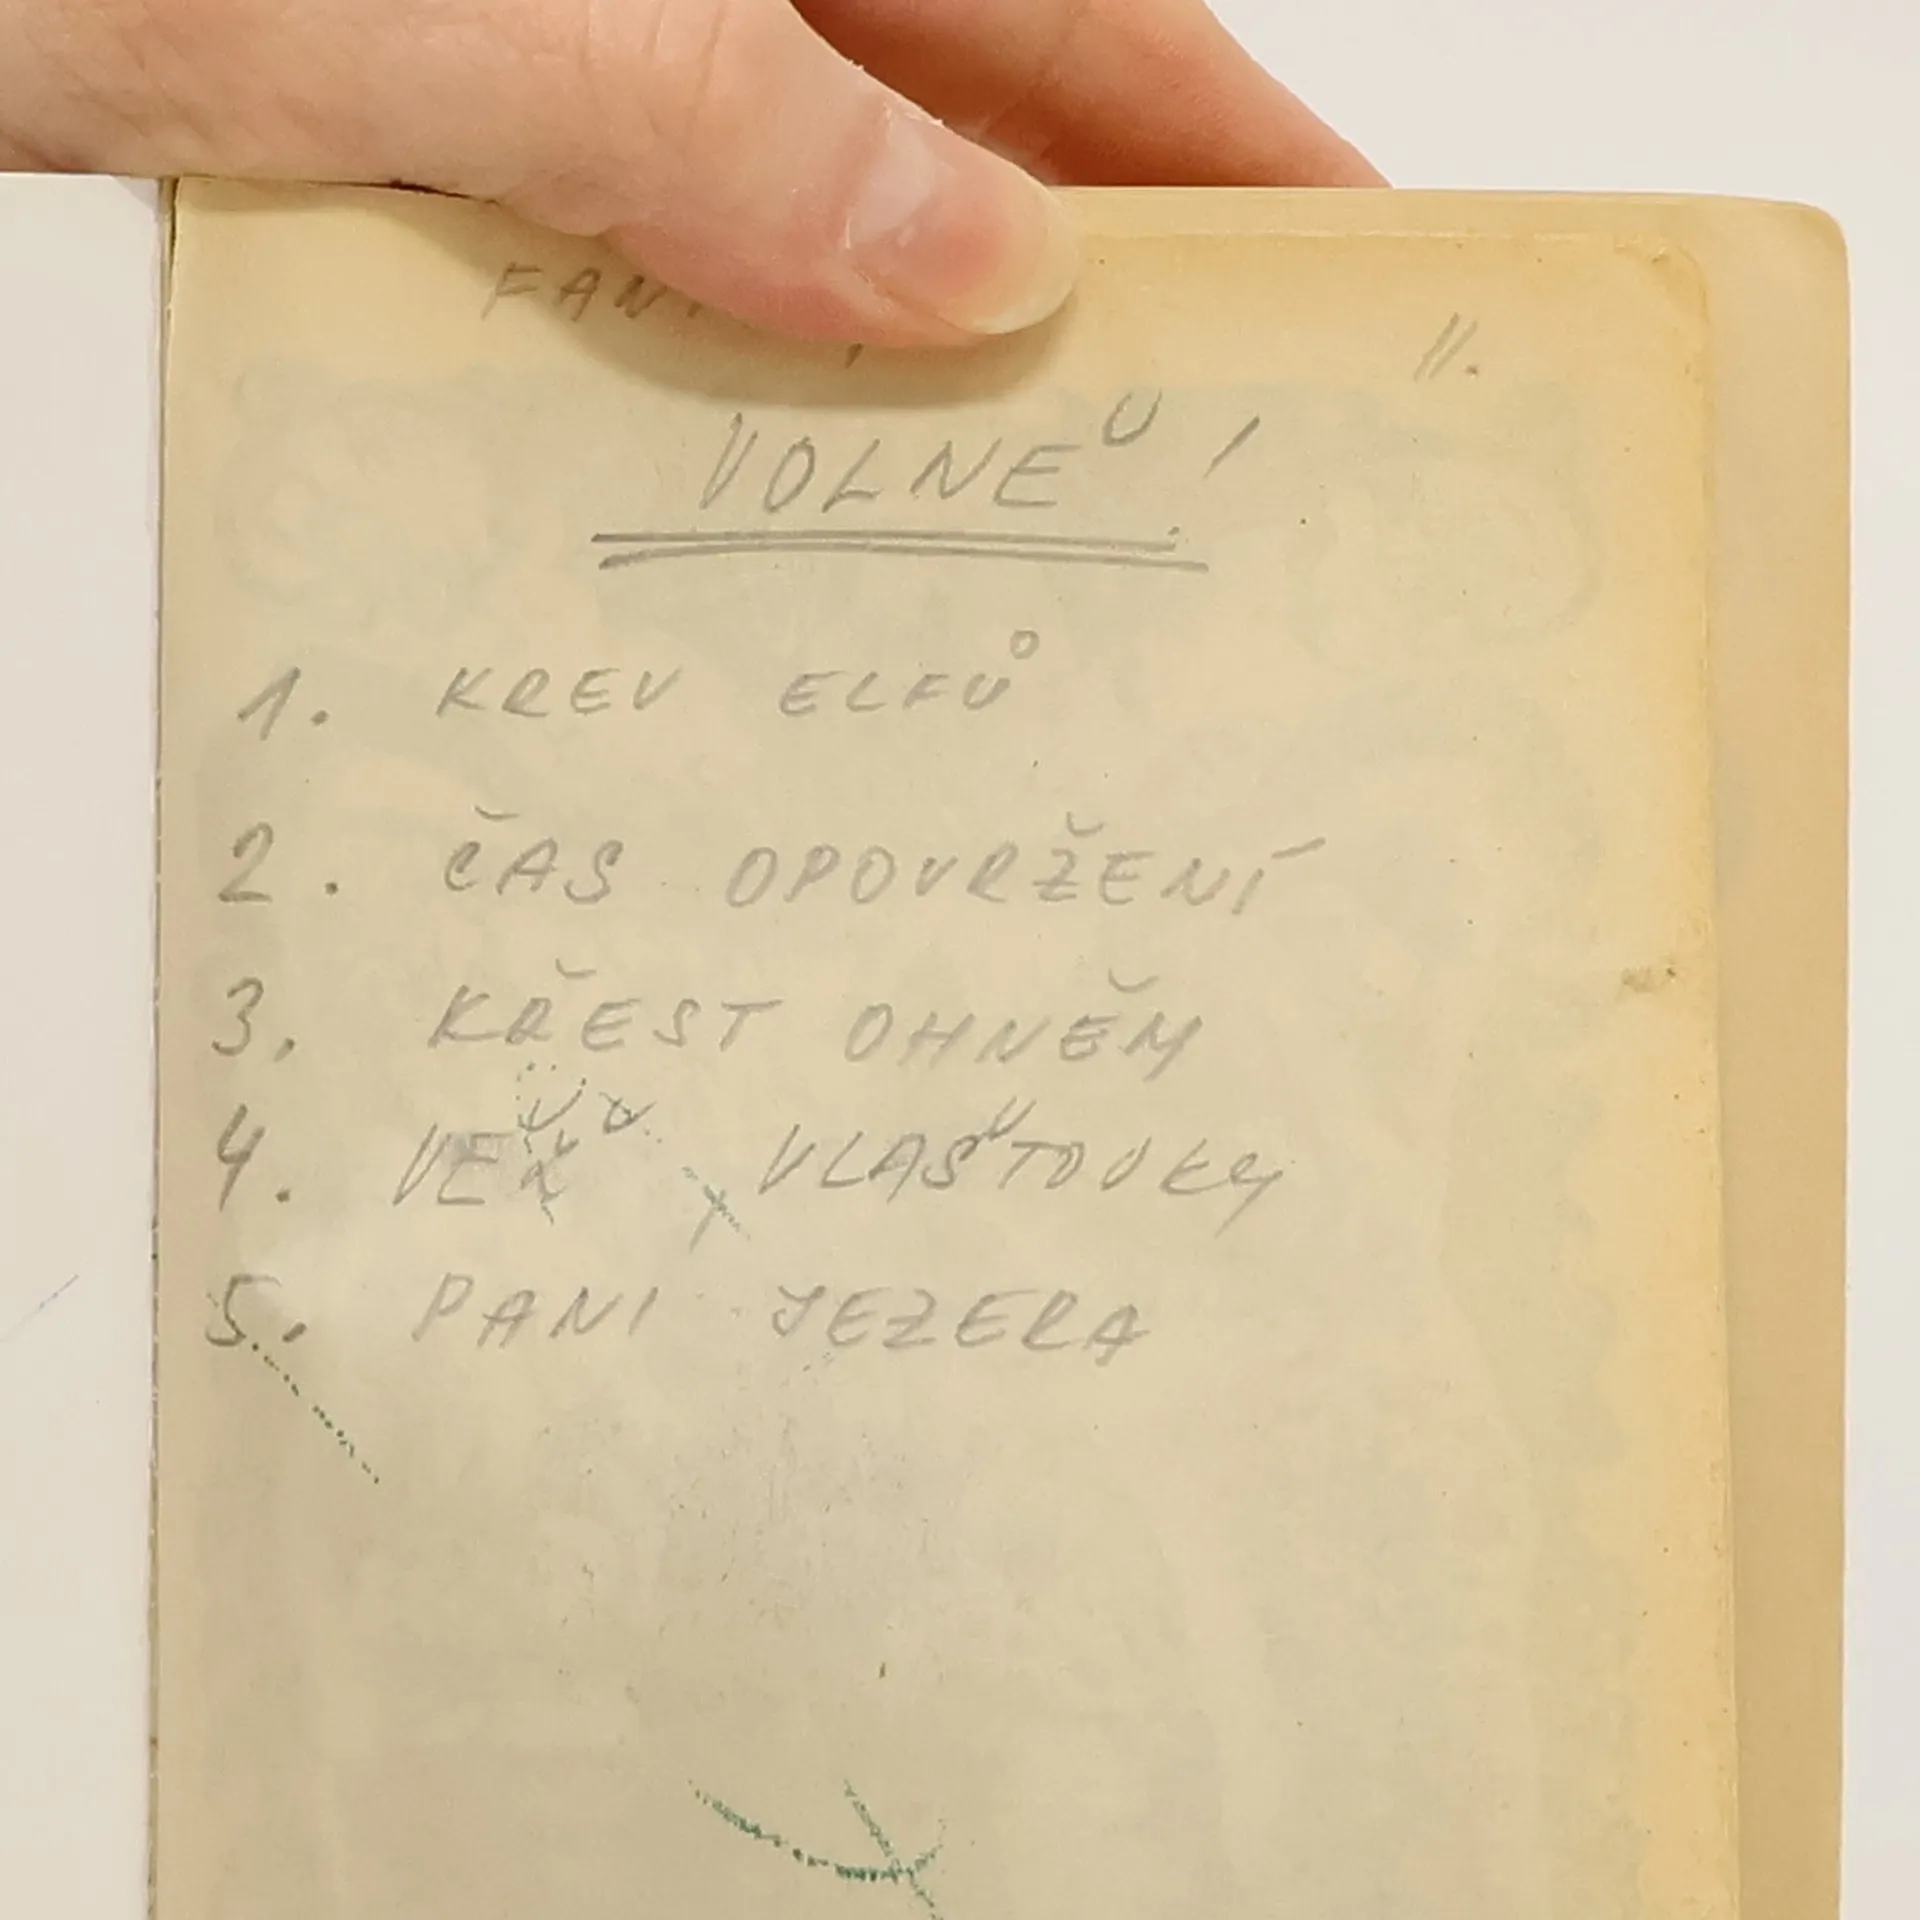 FAN
II.
VOLNĚ
1. KREV ELFŮ
2. ČAS OPOVRŽENÍ
3. KŘEST OHNĚM
4. VĚŽ VLAŠTOVKY
5. PANI JEZERA